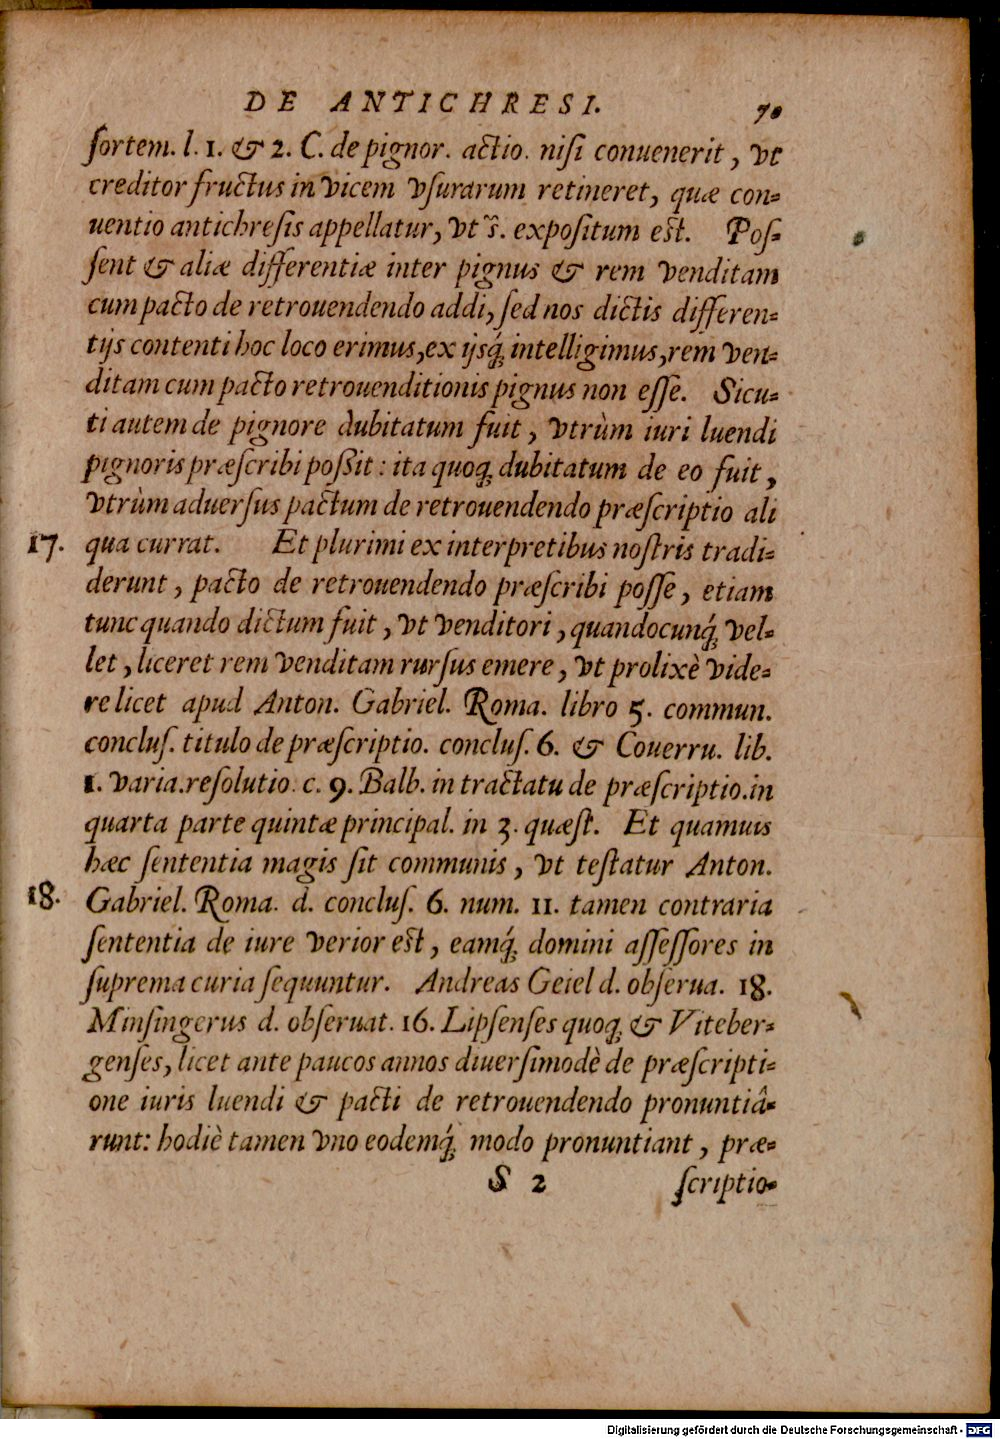 DE ANTICHRESI. 70
ſortem. l. 1. & 2. C. de pignor. actio. niſi conuenerit, vt
creditor fructus in vicem vſurarum retineret, quæ con-
uentio antichreſis appellatur, vt ſ̃. expoſitum eſt. Poſ-
ſent & aliæ differentiæ inter pignus & rem venditam
cum pacto de retrouendendo addi, ſed nos dictis differen-
tijs contenti hoc loco erimus, ex ijsq́; intelligimus, rem ven-
ditam cum pacto retrouenditionis pignus non eſſe. Sicu-
ti autem de pignore dubitatum fuit, vtrùm iuri luendi
pignoris præſcribi poßit: ita quoq; dubitatum de eo fuit,
vtrùm aduerſus pactum de retrouendendo præſcriptio ali
17. qua currat. Et plurimi ex interpretibus noſtris tradi-
derunt, pacto de retrouendendo præſcribi poſſe, etiam
tunc quando dictum fuit, vt venditori, quandocunq́; vel-
let, liceret rem venditam rurſus emere, vt prolixè vide-
re licet apud Anton. Gabriel. Roma. libro 5. commun.
concluſ. titulo de præſcriptio. concluſ. 6. & Couerru. lib.
1. varia. reſolutio. c. 9. Balb. in tractatu de præſcriptio. in
quarta parte quintæ principal. in 3. quæſt. Et quamuis
hæc ſententia magis ſit communis, vt teſtatur Anton.
18. Gabriel. Roma. d. concluſ. 6. num. 11. tamen contraria
ſententia de iure verior eſt, eamq́; domini aſſeſſores in
ſuprema curia ſequuntur. Andreas Geiel d. obſerua. 18.
Minſingerus d. obſeruat. 16. Lipſenſes quoq; & Viteber-
genſes, licet ante paucos annos diuerſimodè de præſcripti-
one iuris luendi & pacti de retrouendendo pronuntiâ-
runt: hodiè tamen vno eodemq́; modo pronuntiant, præ-
S 2 ſcriptio-
Digitalisierung gefördert durch die Deutsche Forschungsgemeinschaft - DFG